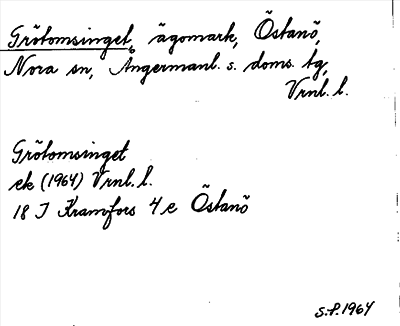 Grötomsinget, ägomark, Östanö,
Nora sn, Ångermanl. s. doms. tg,
Vrnl. l.
Grötomsinget
ek (1964) Vrnl. l.
18 I Kramfors 4 e Östanö
S.P. 1964